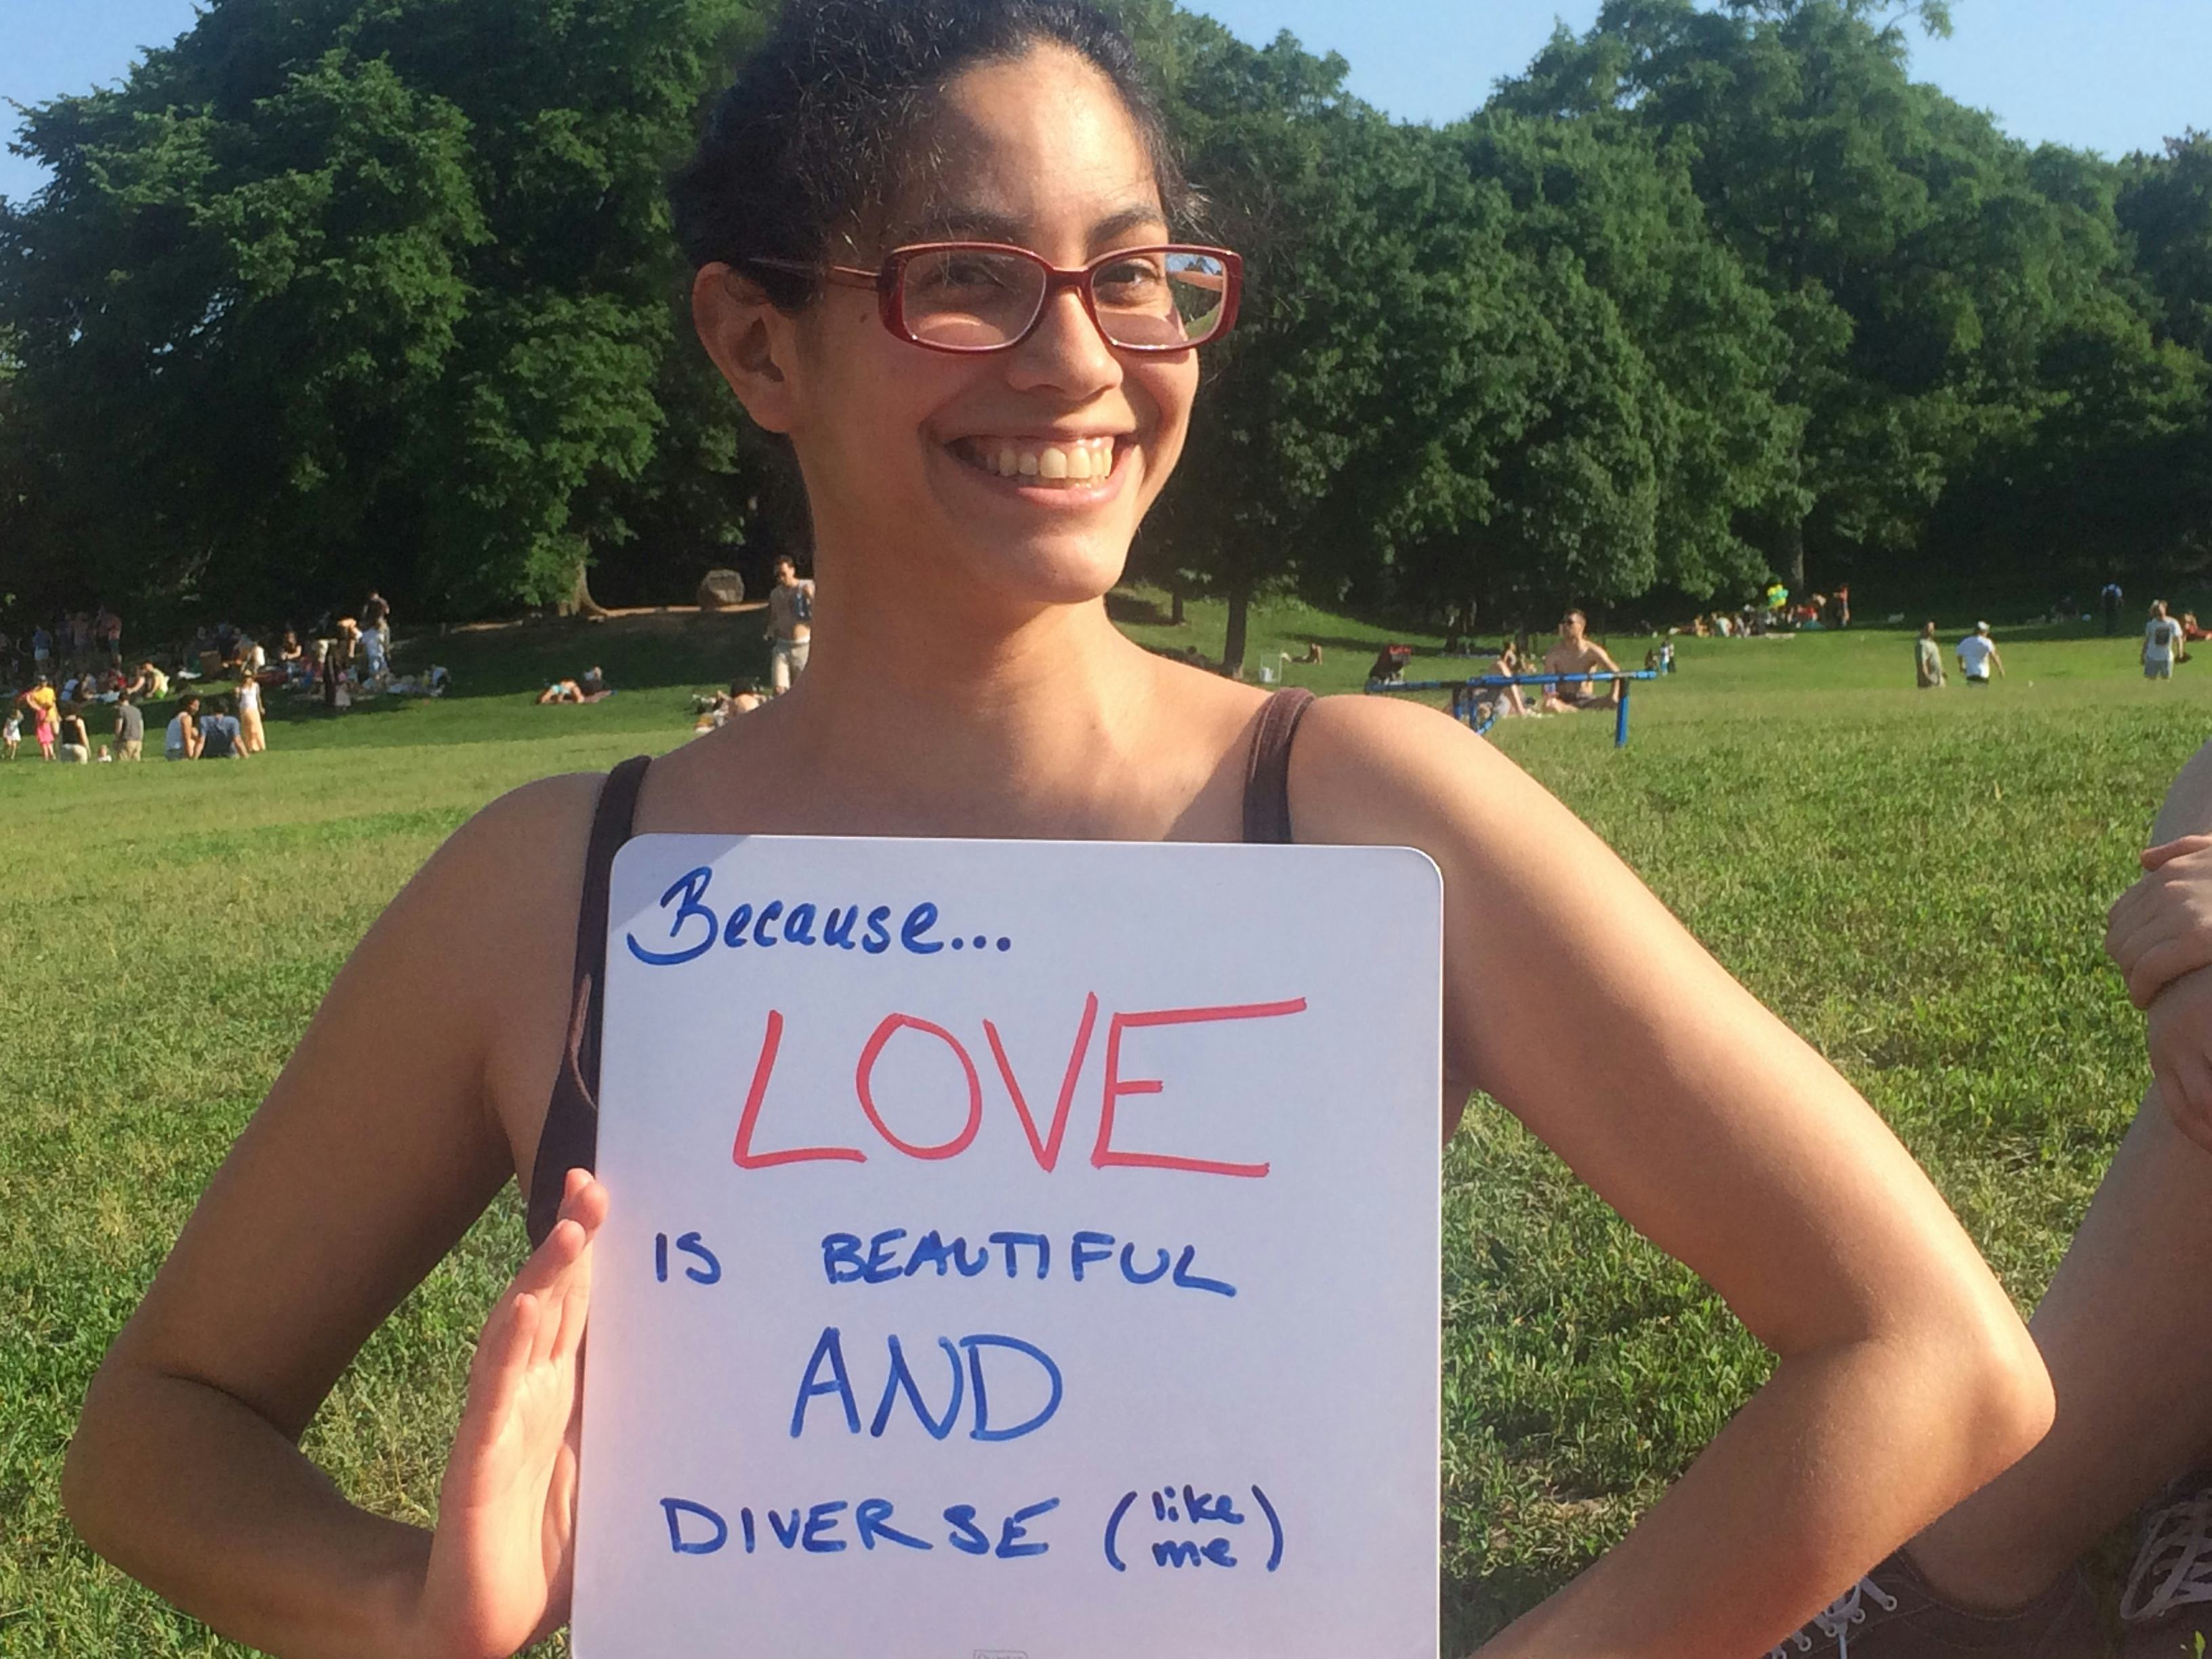 Because...
LOVE
IS BEAUTIFUL
AND
DIVERSE (like me)